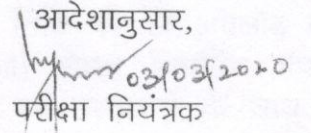 आदेशानुसार,
03/03/2020
परीक्षा नियंत्रक